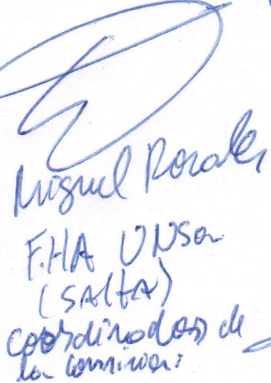 Miguel Rosales
F.HA UNSa
(SAltA)
coordinador de
la comision: